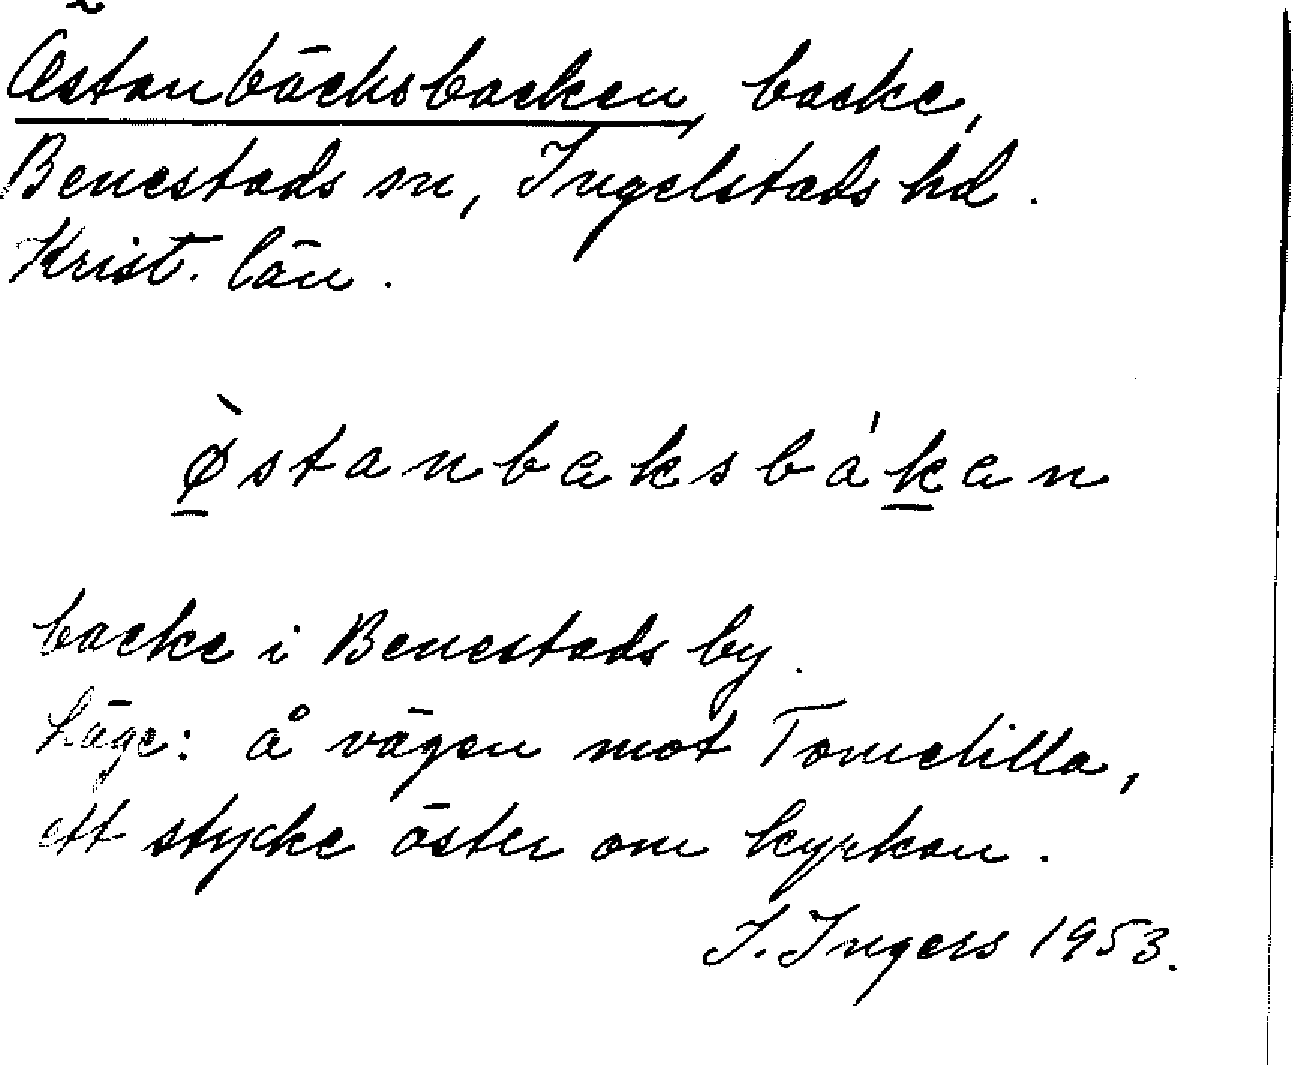 Östanbäcksbacken, backe,
Benestads sn, Ingelstads hd.
Krist. län.
ø̀stanbaksbákan
backe i Benestads by.
Läge: å vägen mot Tomelilla,
ett stycke öster om kyrkan.
I. Ingers 1953.